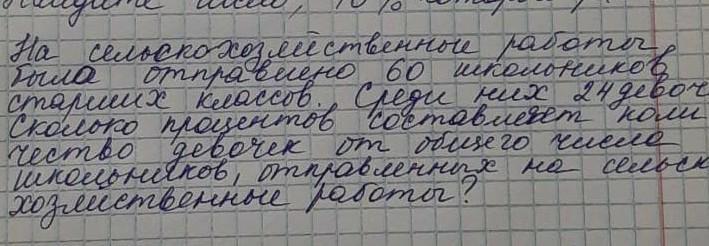 На сельскохозяйственные работы
была отправлено 60 школьников
старших классов. Среди них 24 девоч
Сколько процентов составляет коли
чество девочек от общего числа
школьников, отправленных на сельск
хозяйственные работы?